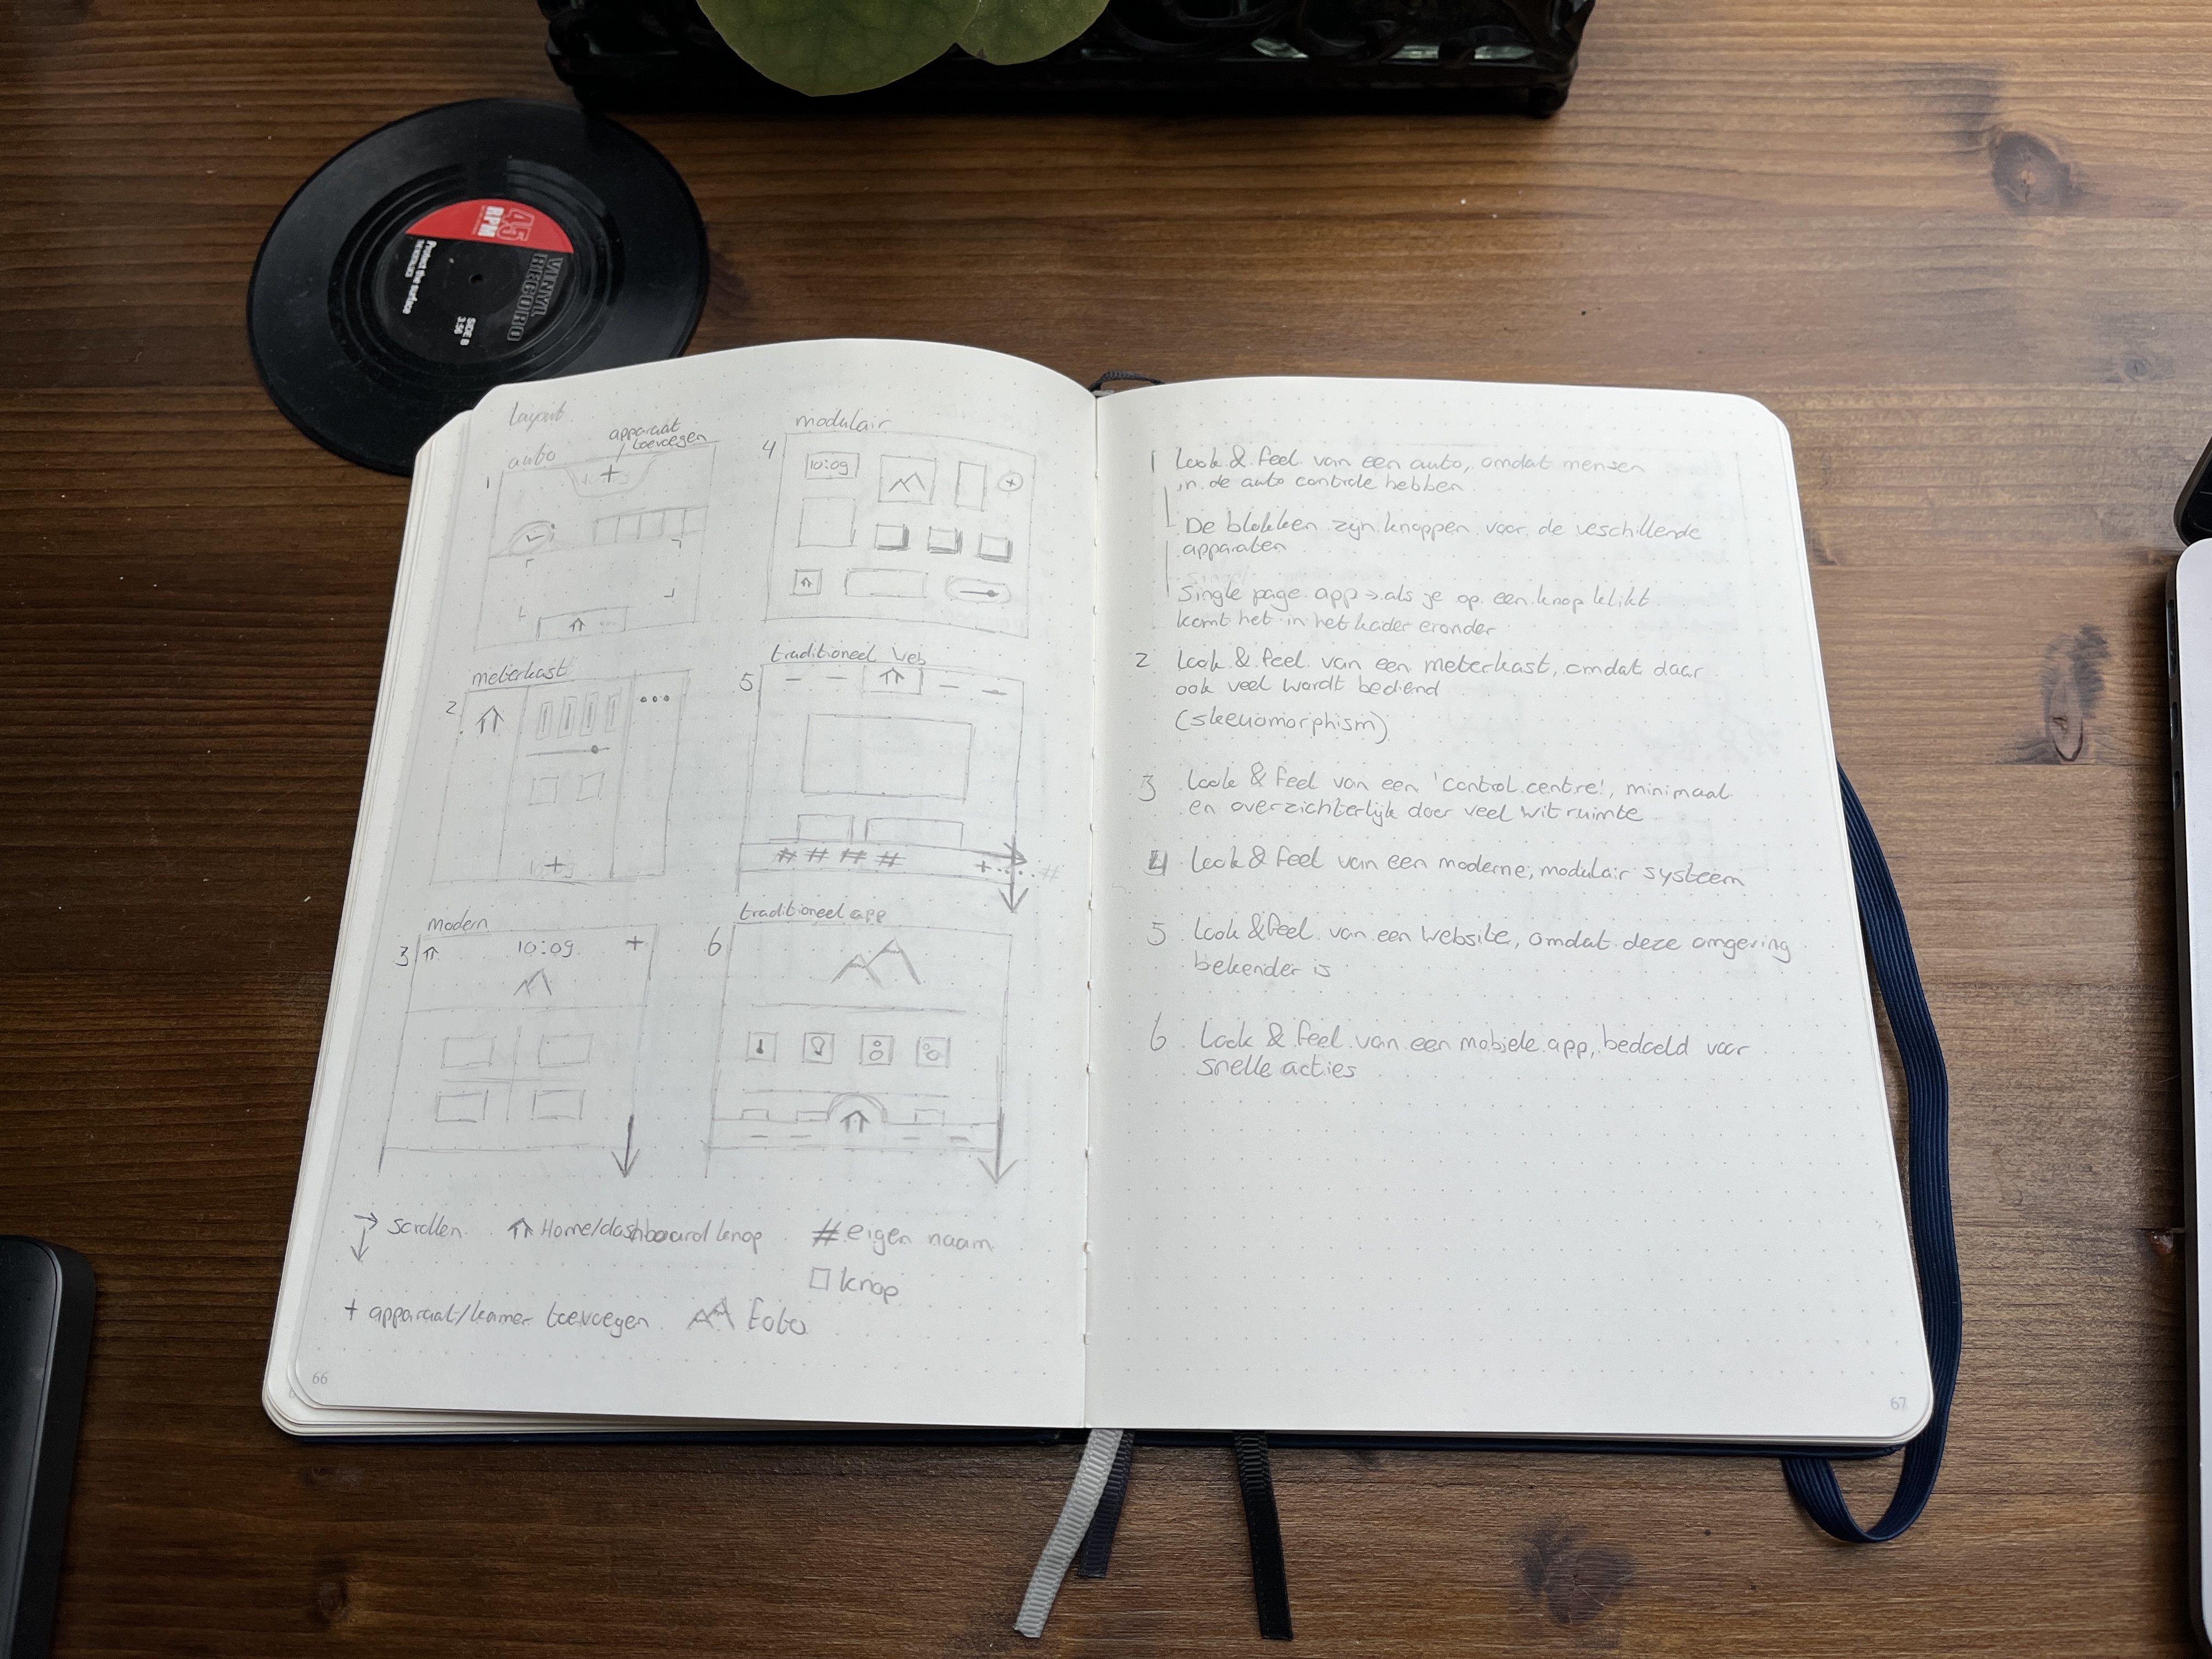 Layout
apparaat
toevoegen
auto
1
+
meterkast
2
+
modern
3
10:09
+
modulair
4
10:09
+
traditioneel web
5
# # # #
+ .... #
traditioneel app
6
scrollen
Home/dashboard knop
# eigen naam
knop
+ apparaat/kamer toevoegen
Foto
66
1 Look & feel van een auto, omdat mensen
in de auto controle hebben
De blokken zijn knoppen voor de veschillende
apparaten
Single page app → als je op een knop klikt
komt het in het kader eronder
2 Look & feel van een meterkast, omdat daar
ook veel wordt bediend
(skeuomorphism)
3 Look & feel van een 'control centre', minimaal
en overzichterlijk door veel witruimte
4 Look & feel van een moderne, modulair systeem
5 Look & feel van een website, omdat deze omgeving
bekender is
6 Look & feel van een mobiele app, bedoeld voor
snelle acties
67
45
RPM
VINYL
RECORD
Protect the surface
SIDE B
3.56